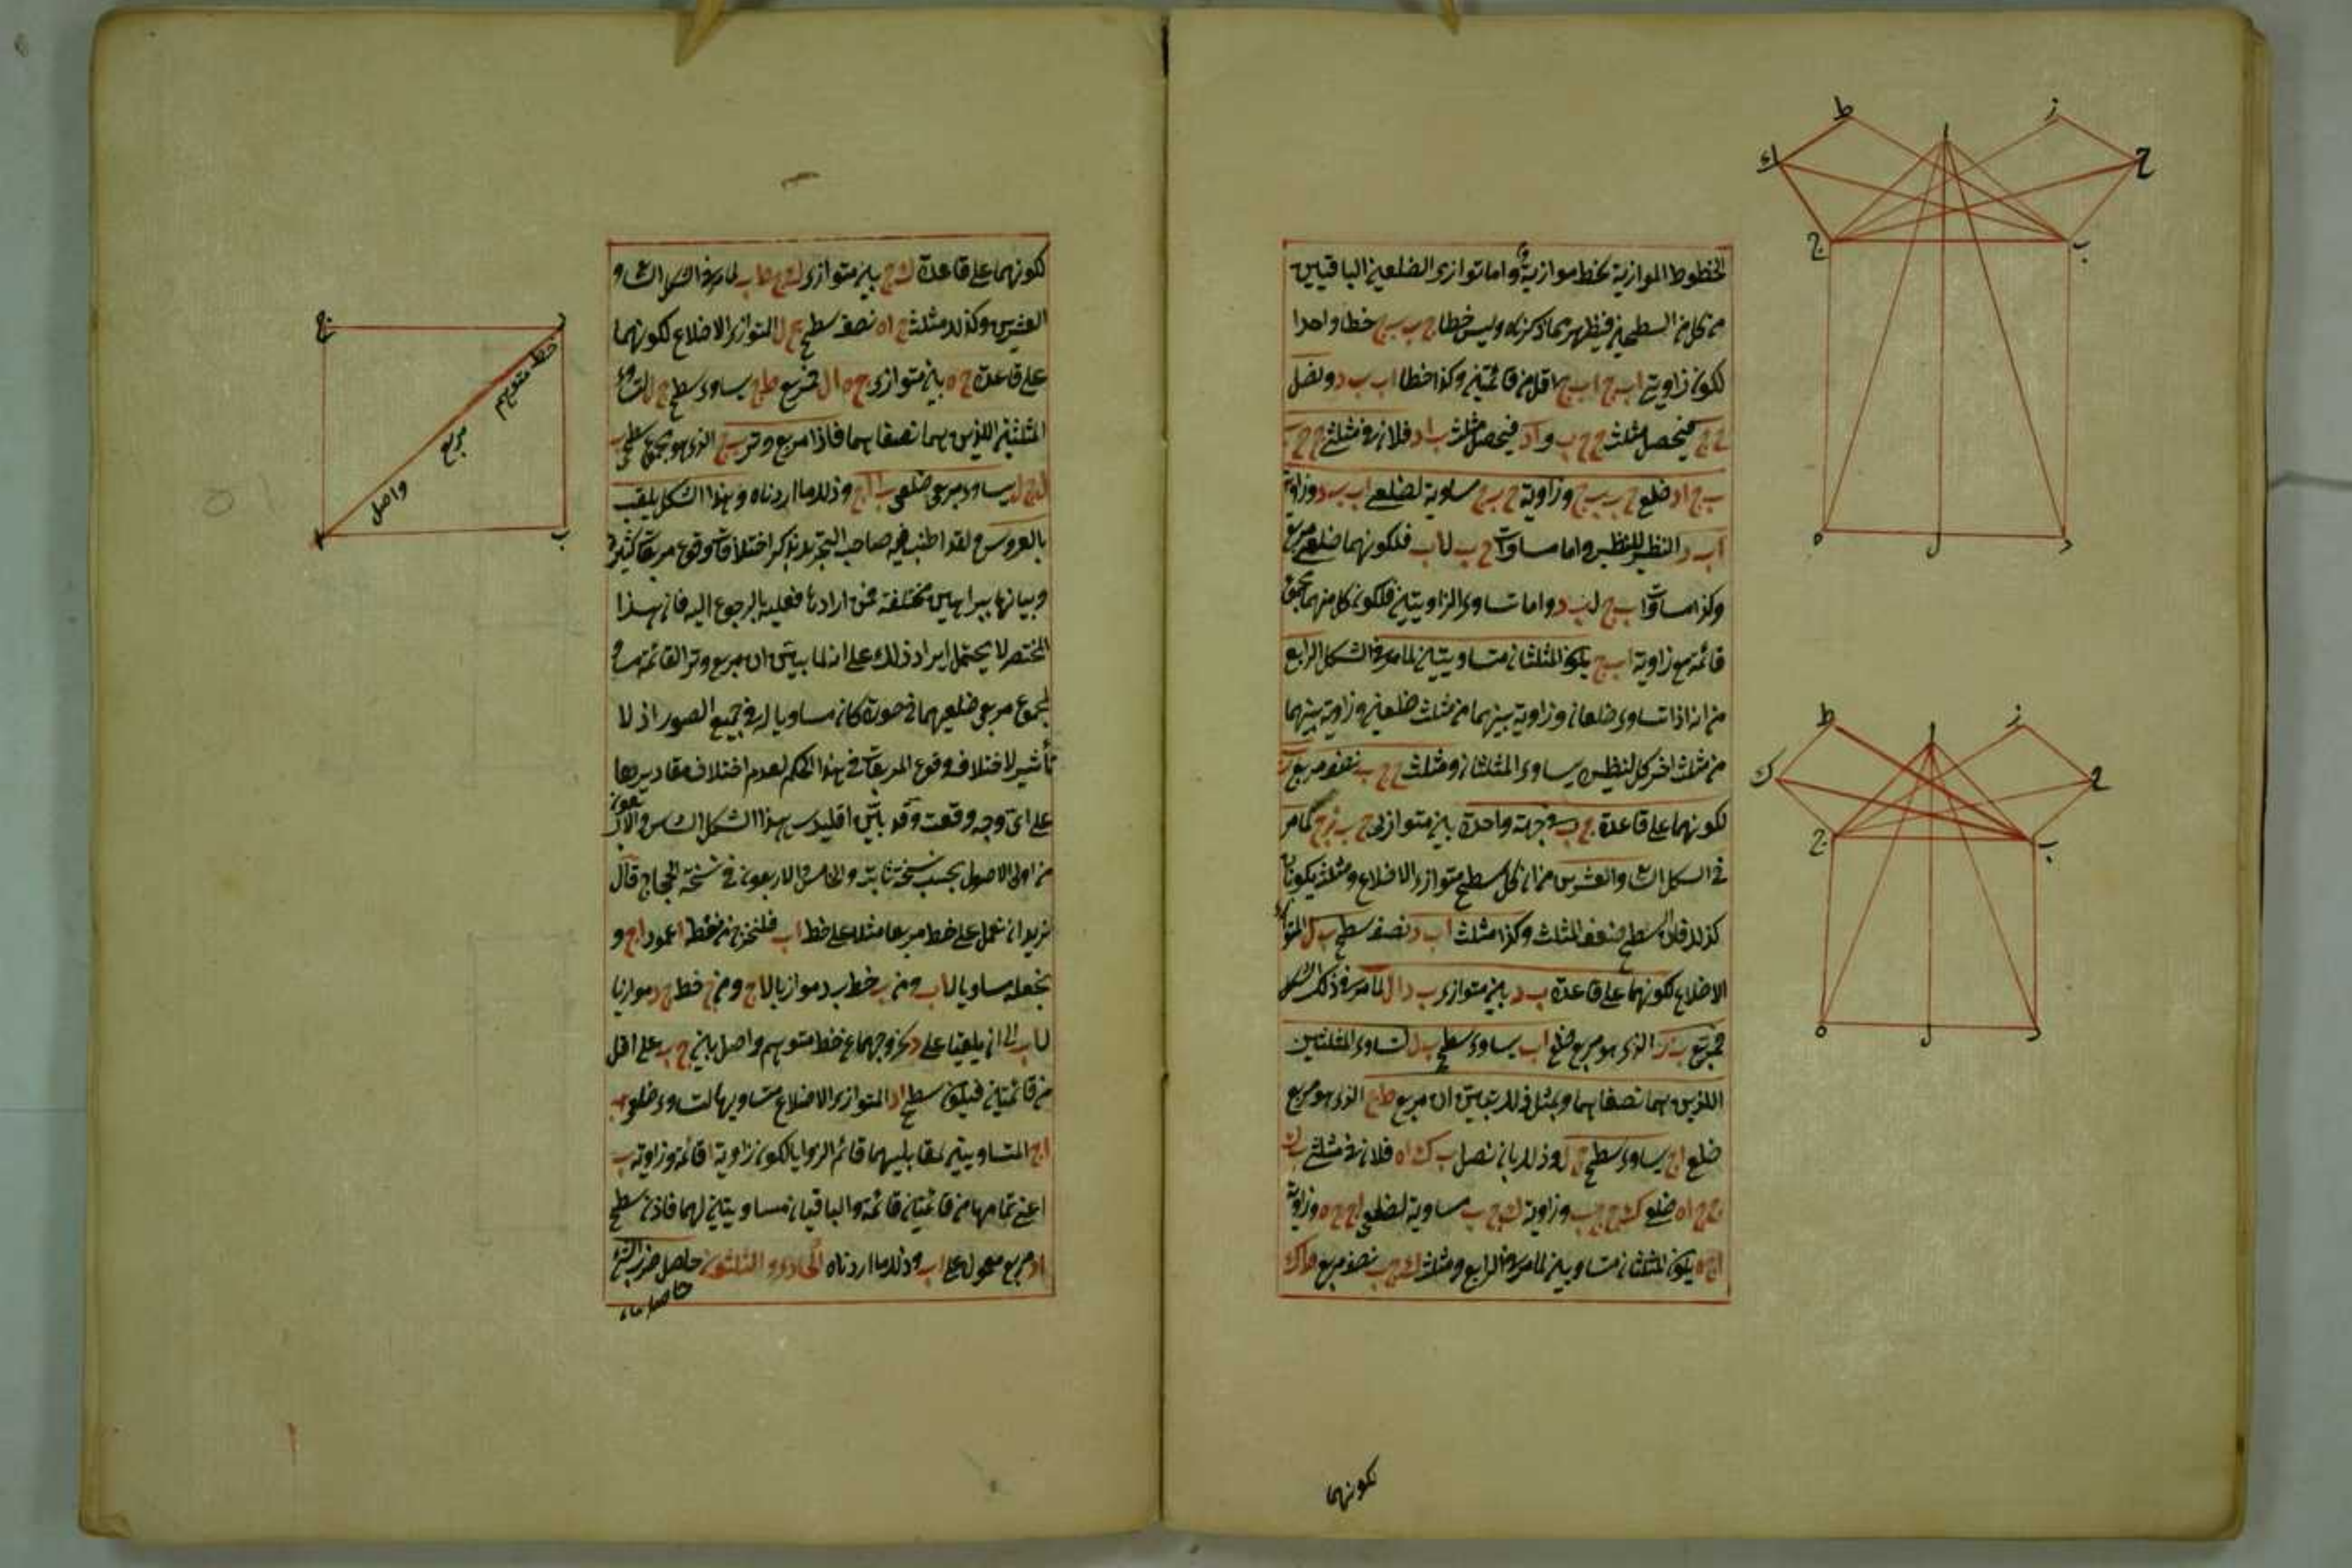 الخطوط الموازية لخط موازية واما توازى الضلعين الباقيين
من كل من السطحين فيظهر مما ذكرناه وليس خطا ح ب ب ج خطا واحدا
لكون زاويتى اب ح اب ج اقل من قائمتين وكذا خطا اب ب د ونصل
ح ج فيحصل مثلث ح ج ب و ا د فيحصل مثلث ب ا د فلان فى مثلثى ح ج
ب ج اد ضلع ح ب ب ج وزاوية ح ب ج مساوية لضلعى اب ب د وزاوية
اب د النظير للنظير واما مساواة ح ب ل اب فلكونهما ضلعى مربع
وكذا مساواة ب ج ل ب د واما تساوى الزاويتين فلكون كل منهما مجموع
قائمة مع زاوية اب ج يكون المثلثان متساويين لما مر فى الشكل الرابع
من انه اذا تساوى ضلعان وزاوية بينهما من مثلث ضلعين وزاوية بينهما
من مثلث اخر كل لنظيره يساوى المثلثان ومثلث ح ج ب نصف مربع ب ز
لكونهما على قاعدة ح ب فى جهة واحدة بين متوازيى ح ب ز ج كما مر
فى الشكل والعشرين من ان كل سطح متوازى الاضلاع ومثلث يكونان
كذلك فان السطح ضعف المثلث وكذا مثلث اب د نصف سطح ب ل المتوازى
الاضلاع لكونهما على قاعدة ب د بين متوازيى ب د ال لما مر فى ذلك الشكل
فمربع ب ز الذى هو مربع ضلع اب يساوى سطح ب ل لتساوى المثلثين
اللذين هما نصفاهما وبمثل ذلك يتبين ان مربع ط ج الذى هو مربع
ضلع اج يساوى سطح ج ل وذلك بان نصل ب ك اه فلان فى مثلثى ب ك
ج ج اه ضلعى ك ج ج ب وزاوية ك ج ب مساوية لضلعى اج ج ه وزاوية
اج ه يكون المثلثان متساويين لما مر فى الرابع ومثلث ك ج ب نصف مربع
لكونهما
لكونهما على قاعدة ك ج بين متوازيى ك ج ط ب لما مر فى الشكل
العشرين وكذلك مثلث ج اه نصف سطح ج ل المتوازى الاضلاع لكونهما
على قاعدة ج ه بين متوازيى ج ه ال فمربع ط ج يساوى سطح ج ل لتساوى
المثلثين اللذين هما نصفاهما فاذا مربع وتر ب ج الذى هو مجموع سطحى
ب ل ج ل يساوى مربعى ضلعى ب ا اج وذلك ما اردناه وهذا الشكل يلقب
بالعروس ولقد اطنب فيه صاحب التحرير بذكر اختلافات وقوع مربعات كثيرة
وبيانها ببراهين مختلفة فمن ارادها فعليه بالرجوع اليه فان هذا
المختصر لا يحتمل ايراد ذلك على انه لما بين ان مربع وتر القائمة مساو
لمجموع مربعى ضلعيهما فى صورة كان مساويا له فى جميع الصور اذ لا
تأثير لاختلاف وقوع المربعات فى هذا الحكم لعدم اختلاف مقاديرها
على اى وجه وقعت وقد بين اقليدس هذا الشكل السادس والاربعون
من اولى الاصول بحسب نسخة ثابت والخامس والاربعون فى نسخة الحجاج قال
نريد ان نعمل على خط مربعا مثلا على خط اب فلنخرج من نقطة ا عمود اج و
نجعله مساويا ل اب ومن ب خط ب د موازيا ل اج ومن ج خط ج د موازيا
ل اب الى ان يلتقيا على د لخروجهما مع خط متوهم واصل بين ج ب على اقل
من قائمتين فيكون سطح اد المتوازى الاضلاع متساويها لتساوى ضلعى اب
اج المتساويين لمقابليهما قائم الزوايا لكون زاوية ا قائمة وزاوية ب
اعنى تمامها من قائمتين قائمة والباقيان مساويتين لهما فاذن سطح
اد مربع معمول على اب وذلك ما اردناه الحادى والثلثون حاصل ضرب
ط
ا
ز
ك
ح
ج
ب
ه
ل
د
ط
ا
ز
ك
ح
ج
ب
ه
ل
د
ج
د
خط متوهم
مربع
واصل
ا
ب